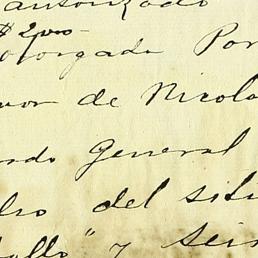 autorizado
$ 2 pso -
otorgada Por
vor de Nicola
ndo General
dro del siti
" y seis